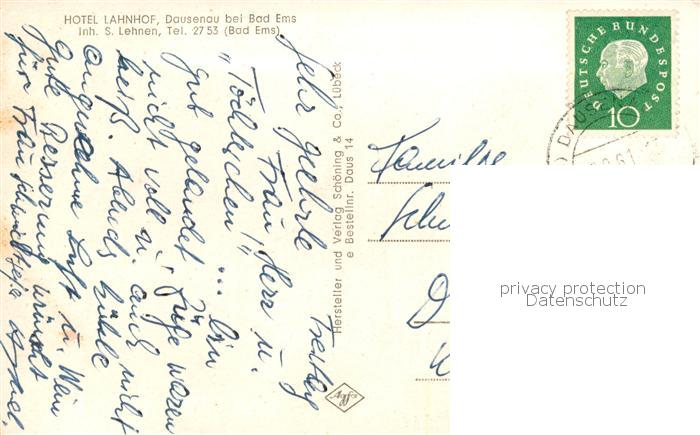 HOTEL LAHNHOF, Dausenau bei Bad Ems
Inh. S. Lehnen, Tel. 27 53 (Bad Ems)
Freitag
Sehr geehrte
Frau, Herr u.
"Tödtchen"!
... bin
gut gelandet, Züge waren
nicht voll u. auch nicht
heiß. Abends kühle
angenehme Luft u. Wein
Gute Besserung wünscht
fürs Frau
Hersteller und Verlag Schöning & Co., Lübeck
e Bestellnr. Daus 14
Agfa
DEUTSCHE BUNDESPOST
10
DAUS
61
Familie
Sch
D
privacy protection
Datenschutz